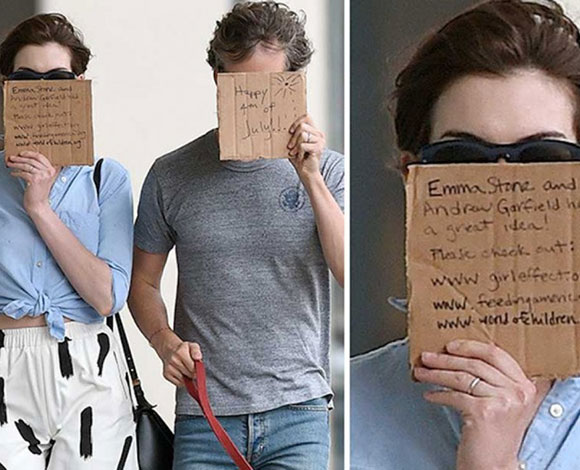 Emma Stone and
Andrew Garfield had
a great idea!
Please check out:
www. girleffect.org
www. feedingamerica.org
Happy
4th of
July!!
Emma Stone and
Andrew Garfield had
a great idea!
Please check out:
www girleffect.o
www. feedingameric
www. worldofchildren.